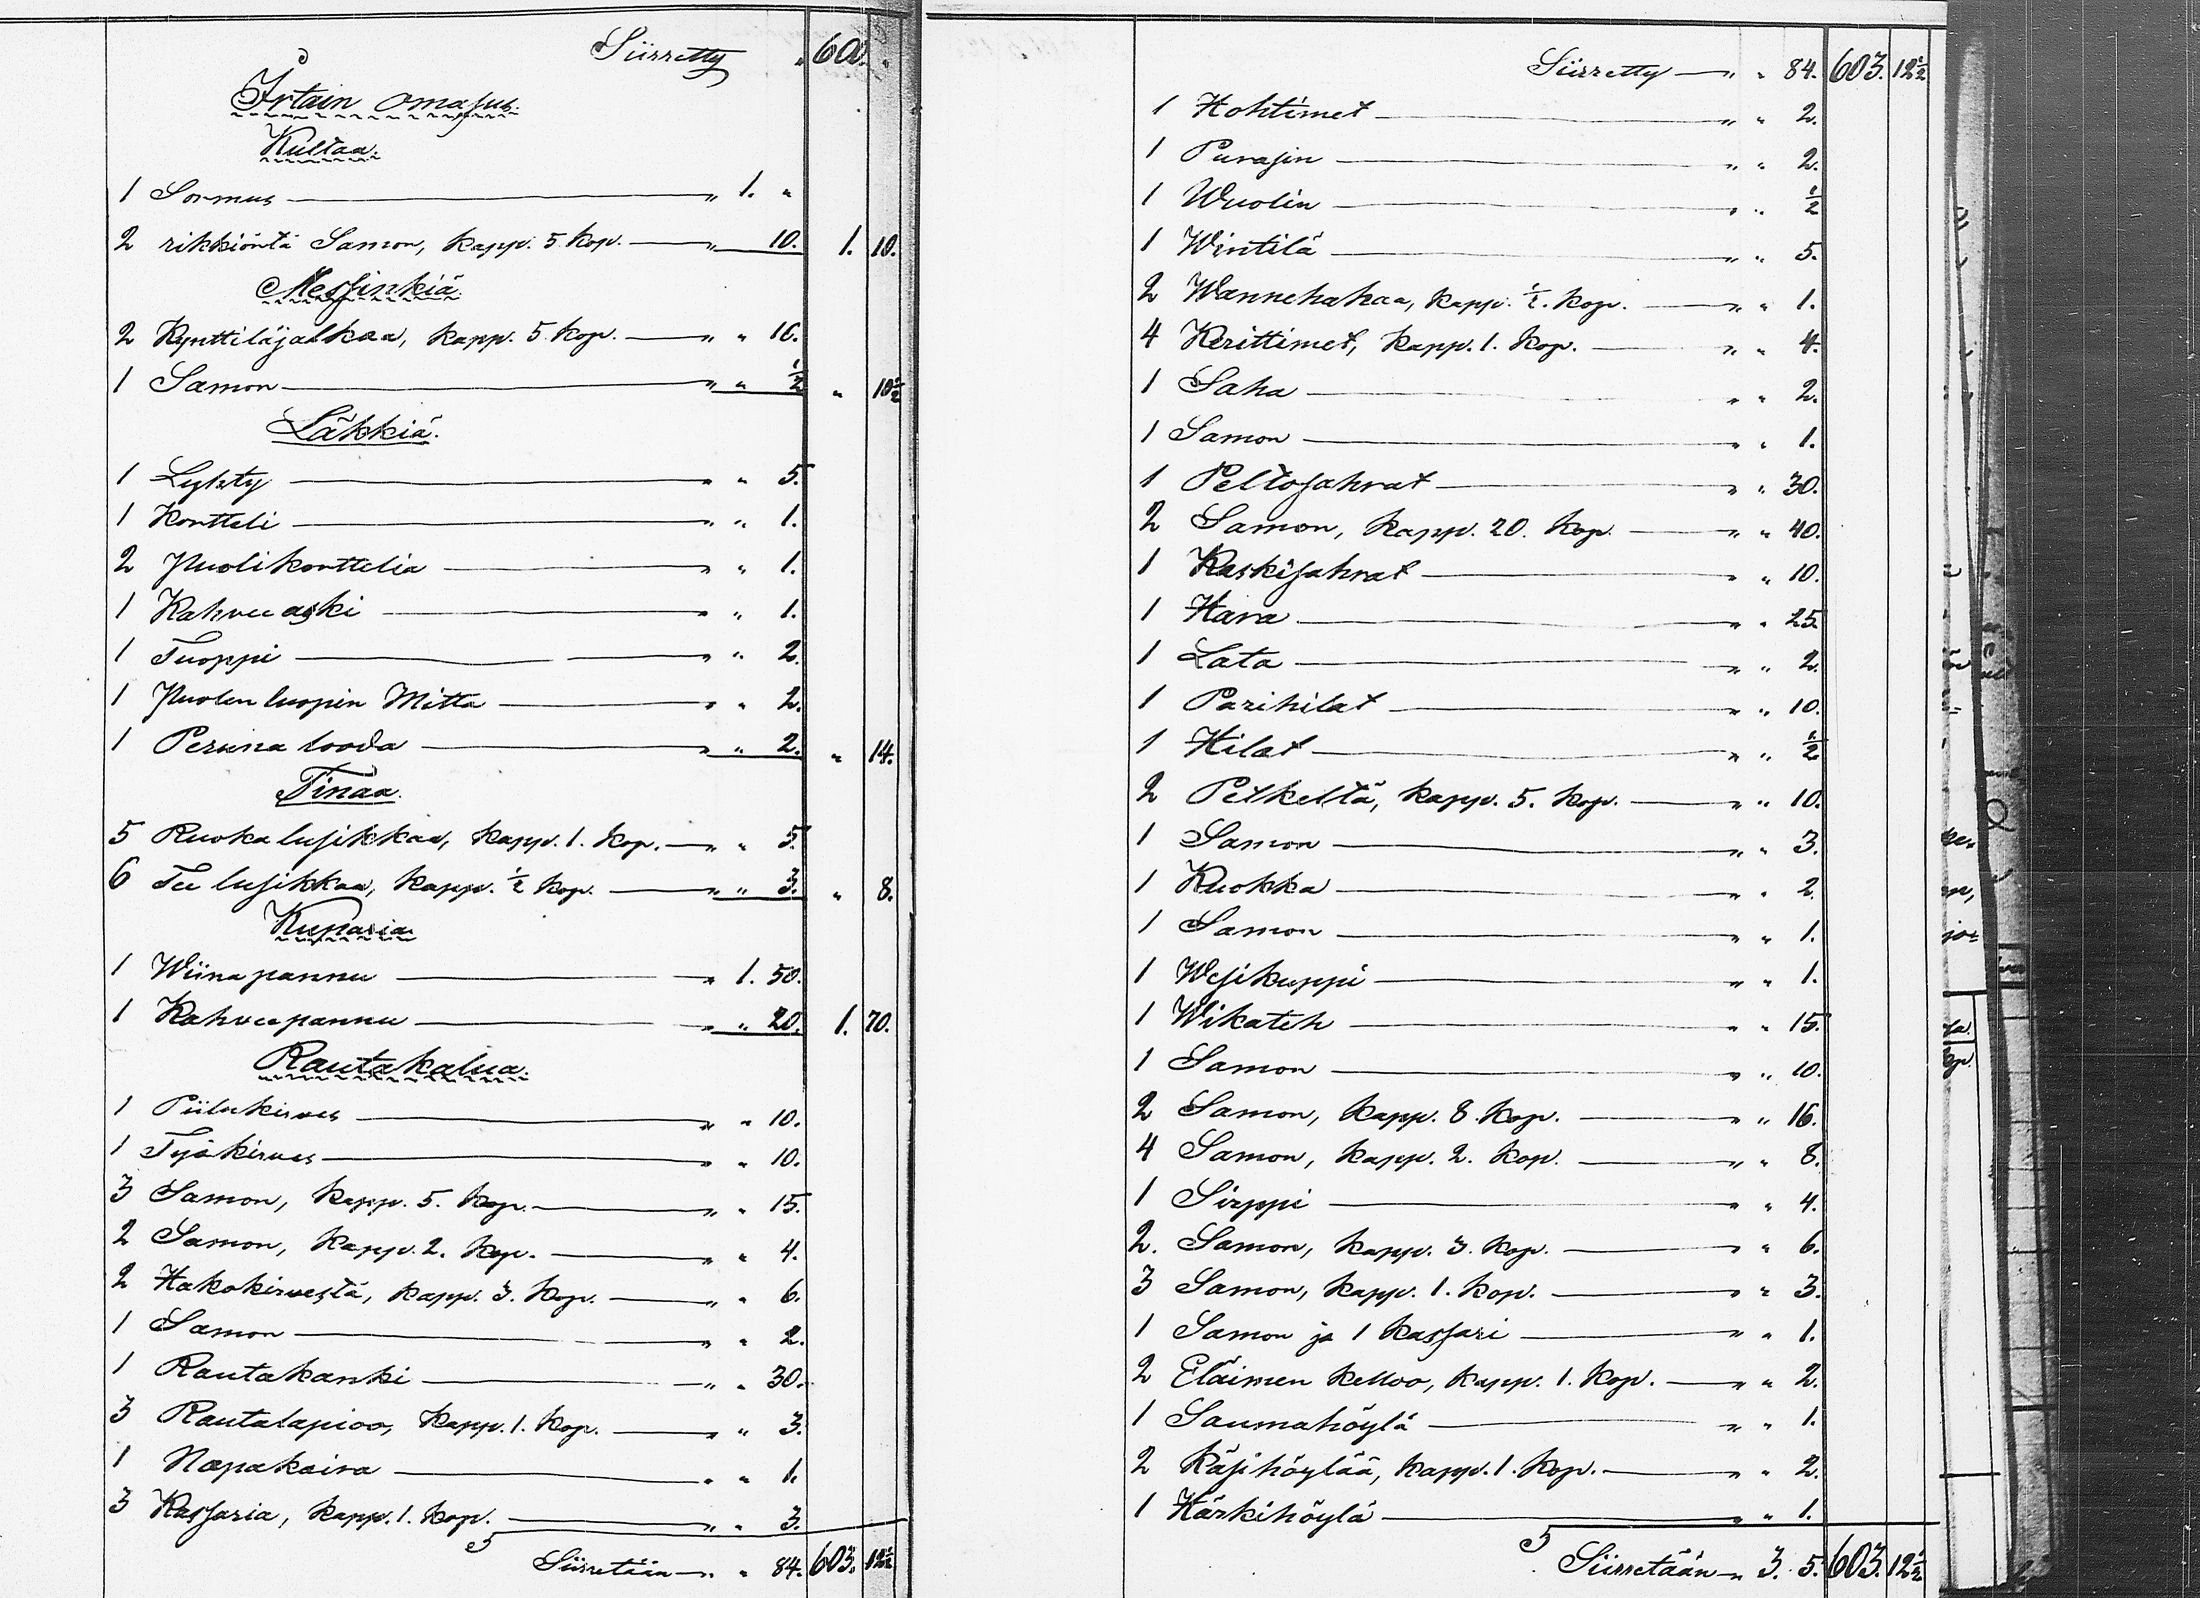 Siirretty " 600. "
Irtain omasuus.
Kultaa.
1 Sormus " 1. "
2 rikkiöntä Samon, kapp. 5 kop. " 10. 1. 10.
Messinkiä.
2 Kynttiläjalkaa, kapp. 5. kop. " " 10.
1 Samon " " ½ " 10½
Läkkiä.
1 Lyhty " " 5.
1 Kortteli " " 1.
2 Puolikorttelia " " 1.
1 Kahvee aski " " 1.
1 Tuoppi " " 2.
1 Puolen tuopin Mitta " " 2.
1 Peruna looda " " 2. " 14.
Tinaa.
5 Ruoka lusikkaa, kapp. 1. kop. " " 5.
6 Tee lusikkaa, kapp. ½ kop. " " 3. " 8.
Kuparia
1 Wiinapannu " 1. 50.
1 Kahveepannu " " 20. 1. 70.
Rautakalua.
1 Piilukirves " " 10.
1 Työkirves " " 10.
3 Samon, kapp. 5. kop. " " 15.
2 Samon, kapp. 2. kop. " " 4.
2 Hakokirvestä, kapp. 3. kop. " " 6.
1 Samon " " 2.
1 Rautakanki " " 30.
3 Rautalapioo, kapp. 1. kop. " " 3.
1 Napakaira " " 1.
3 Kassaria, kapp. 1. kop. " " 3.
Siirretään " " 84. 603. 12½
Siirretty " " 84. 603. 12½
1 Hohtimet " " 2.
1 Purasin " " 2.
1 Wuolin " " ½
1 Wintilä " " 5.
2 Wannehakaa, kapp. ½. kop. " " 1.
4 Kerittimet, kapp. 1. kop. " " 4.
1 Saha " " 2.
1 Samon " " 1.
1 Peltosahrat " " 30.
2 Samon, kapp. 20. kop. " " 40.
1 Kaskisahrat " " 10.
1 Hara " " 25.
1 Lata " " 2.
1 Parihilat " " 10.
1 Hilat " " ½
2 Petkeltä, kapp. 5. kop. " " 10.
1 Samon " " 3.
1 Kuokka " " 2.
1 Samon " " 1.
1 Wesikuppi " " 1.
1 Wikateh " " 15.
1 Samon " " 10.
2 Samon, kapp. 8. kop. " " 16.
4 Samon, kapp. 2. kop. " " 8.
1 Sirppi " " 4.
2. Samon, kapp. 3. kop. " " 6.
3 Samon, kapp. 1. kop. " " 3.
1 Samon ja 1 kassari " " 1.
2 Eläimen kelloo, kapp. 1. kop. " " 2.
1 Saumahöylä " " 1.
2 Käsihöylää, kapp. 1. kop. " " 2.
1 Kärkihöylä " " 1.
Siirretään " 3. 5. 603. 12½